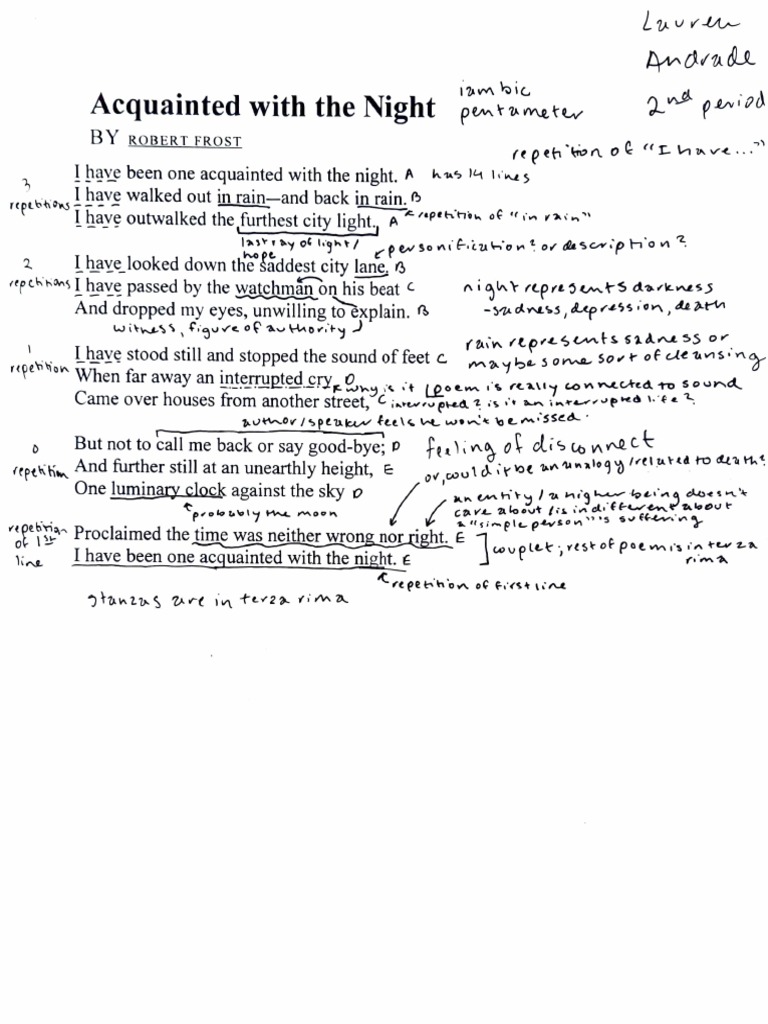 Lauren
Andrade
2nd period
iambic
pentameter
Acquainted with the Night
BY ROBERT FROST
repetition of "I have..."
I have been one acquainted with the night. A has 14 lines
3
repetitions
I have walked out in rain—and back in rain. B
I have outwalked the furthest city light. A repetition of "in rain"
last ray of light/
hope
personification? or description?
2
repetitions
I have looked down the saddest city lane. B
I have passed by the watchman on his beat C
And dropped my eyes, unwilling to explain. B
witness, figure of authority
night represents darkness
-sadness, depression, death
rain represents sadness or
maybe some sort of cleansing
1
repetition
I have stood still and stopped the sound of feet C
When far away an interrupted cry D
why is it / poem is really connected to sound
Came over houses from another street, C
interrupted? is it an interrupted life?
author/speaker feels he won't be missed.
0
repetition
But not to call me back or say good-bye; D
And further still at an unearthly height, E
One luminary clock against the sky D
probably the moon
feeling of disconnect
or, could it be an analogy/related to death?
an entity/a higher being doesn't
care about/is indifferent about
a "simple person"'s suffering
repetition
of 1st
line
Proclaimed the time was neither wrong nor right. E
I have been one acquainted with the night. E
couplet; rest of poem is in terza
rima
repetition of first line
stanzas are in terza rima